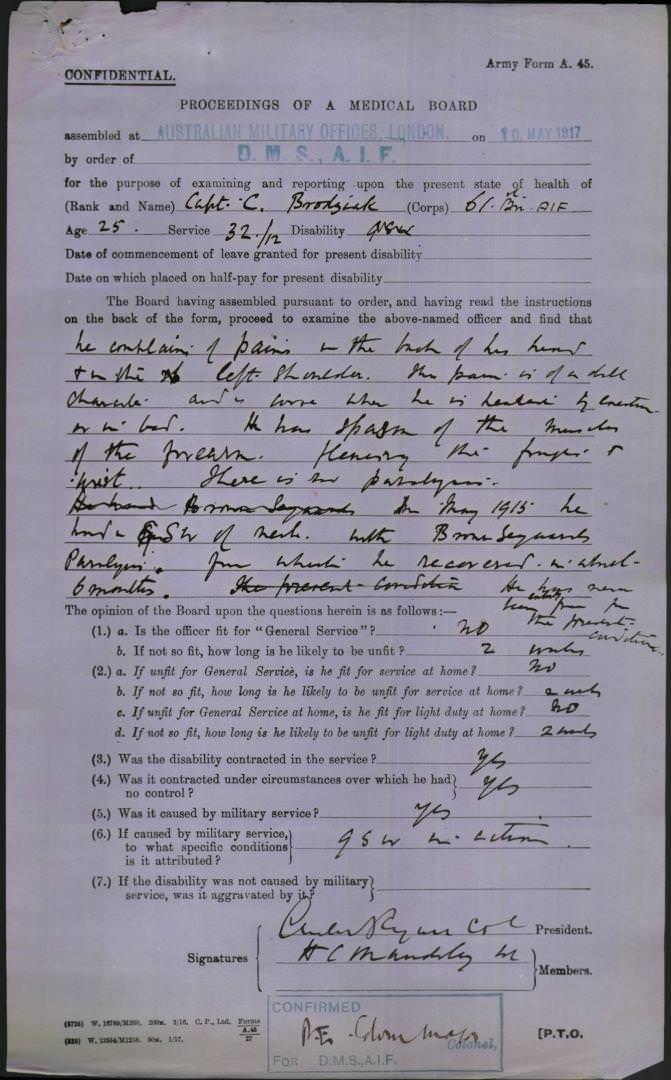 Army Form A. 45.
CONFIDENTIAL.
PROCEEDINGS OF A MEDICAL BOARD
assembled at AUSTRALIAN MILITARY OFFICES, LONDON. on 10 MAY 1917
by order of D. M. S., A. I. F.
for the purpose of examining and reporting upon the present state of health of
(Rank and Name) Capt. C. Brodziak (Corps) 61. Bn. AIF
Age 25. Service 32/12 Disability GSW
Date of commencement of leave granted for present disability
Date on which placed on half-pay for present disability
The Board having assembled pursuant to order, and having read the instructions
on the back of the form, proceed to examine the above-named officer and find that
he complains of pains in the back of his head
& in the left shoulder. The pain is of a dull
character and is worse when he is heated by exertion
or in bed. He has spasm of the muscles
of the forearm. flexing the fingers &
wrist. There is no paralysis.
Brown Sequards In May 1915 he
had a GSW of neck. with Brown Sequards
Paralysis. from which he recovered in about
6 months. The present condition He has never
been entirely free from
the present
condition.
The opinion of the Board upon the questions herein is as follows:—
(1.) a. Is the officer fit for "General Service"? NO
b. If not so fit, how long is he likely to be unfit? 2 weeks
(2.) a. If unfit for General Service, is he fit for service at home? No
b. If not so fit, how long is he likely to be unfit for service at home? 2 weeks
c. If unfit for General Service at home, is he fit for light duty at home? NO
d. If not so fit, how long is he likely to be unfit for light duty at home? 2 weeks
(3.) Was the disability contracted in the service? Yes
(4.) Was it contracted under circumstances over which he had no control? Yes
(5.) Was it caused by military service? Yes
(6.) If caused by military service,
to what specific conditions
is it attributed? G S W in action.
(7.) If the disability was not caused by military
service, was it aggravated by it?
Signatures
Charles Ryan Col President.
H C Maudsley
Members.
CONFIRMED
Colonel,
FOR D.M.S., A.I.F.
(5726) W. 16789/M1200. 200m. 2/16. C. P., Ltd. Forms A.45 27
1/17.
[P.T.O.